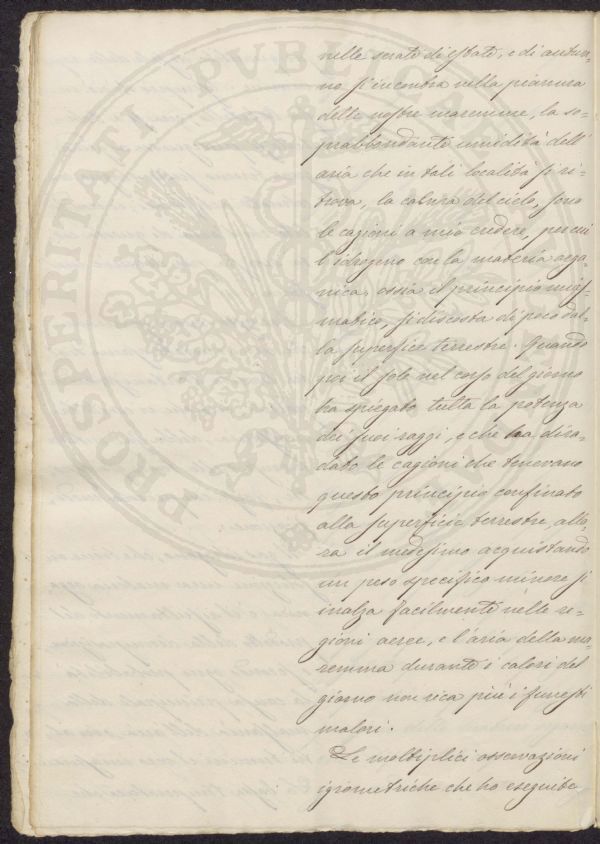 nelle serate di estate, e di autun-
no s'incontra nella pianura
delle nostre maremme, la so-
prabbondante umidità dell'
aria che in tali località si ri-
trova, la calura del cielo, sono
le cagioni a mio credere, per cui
l'idrogeno con la materia orga
nica, ossia il principio mias-
matico, si discosta di poco dal-
la superfice terrestre. Quando
poi il sole nel corso del giorno
ha spiegato tutta la potenza
dei suoi raggi, e che ha dira-
dato le cagioni che tenevano
questo principio confinato
alla superficie terrestre, allo-
ra il medesimo acquistando
un peso specifico minore si
inalza facilmente nelle re-
gioni aeree, e l'aria della ma-
remma durante i calori del
giorno non reca più i funesti
malori.
Le moltiplici osservazioni
igrometriche che ho eseguite
PROSPERITATI PVBLICAE